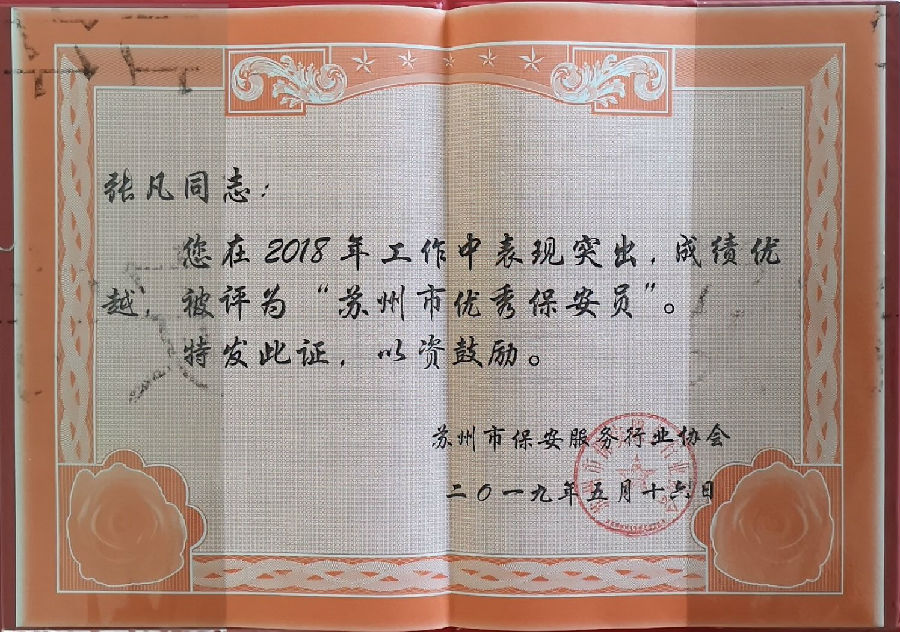 张凡同志：
您在2018年工作中表现突出，成绩优
越，被评为“苏州市优秀保安员”。
特发此证，以资鼓励。
苏州市保安服务行业协会
二〇一九年五月十六日